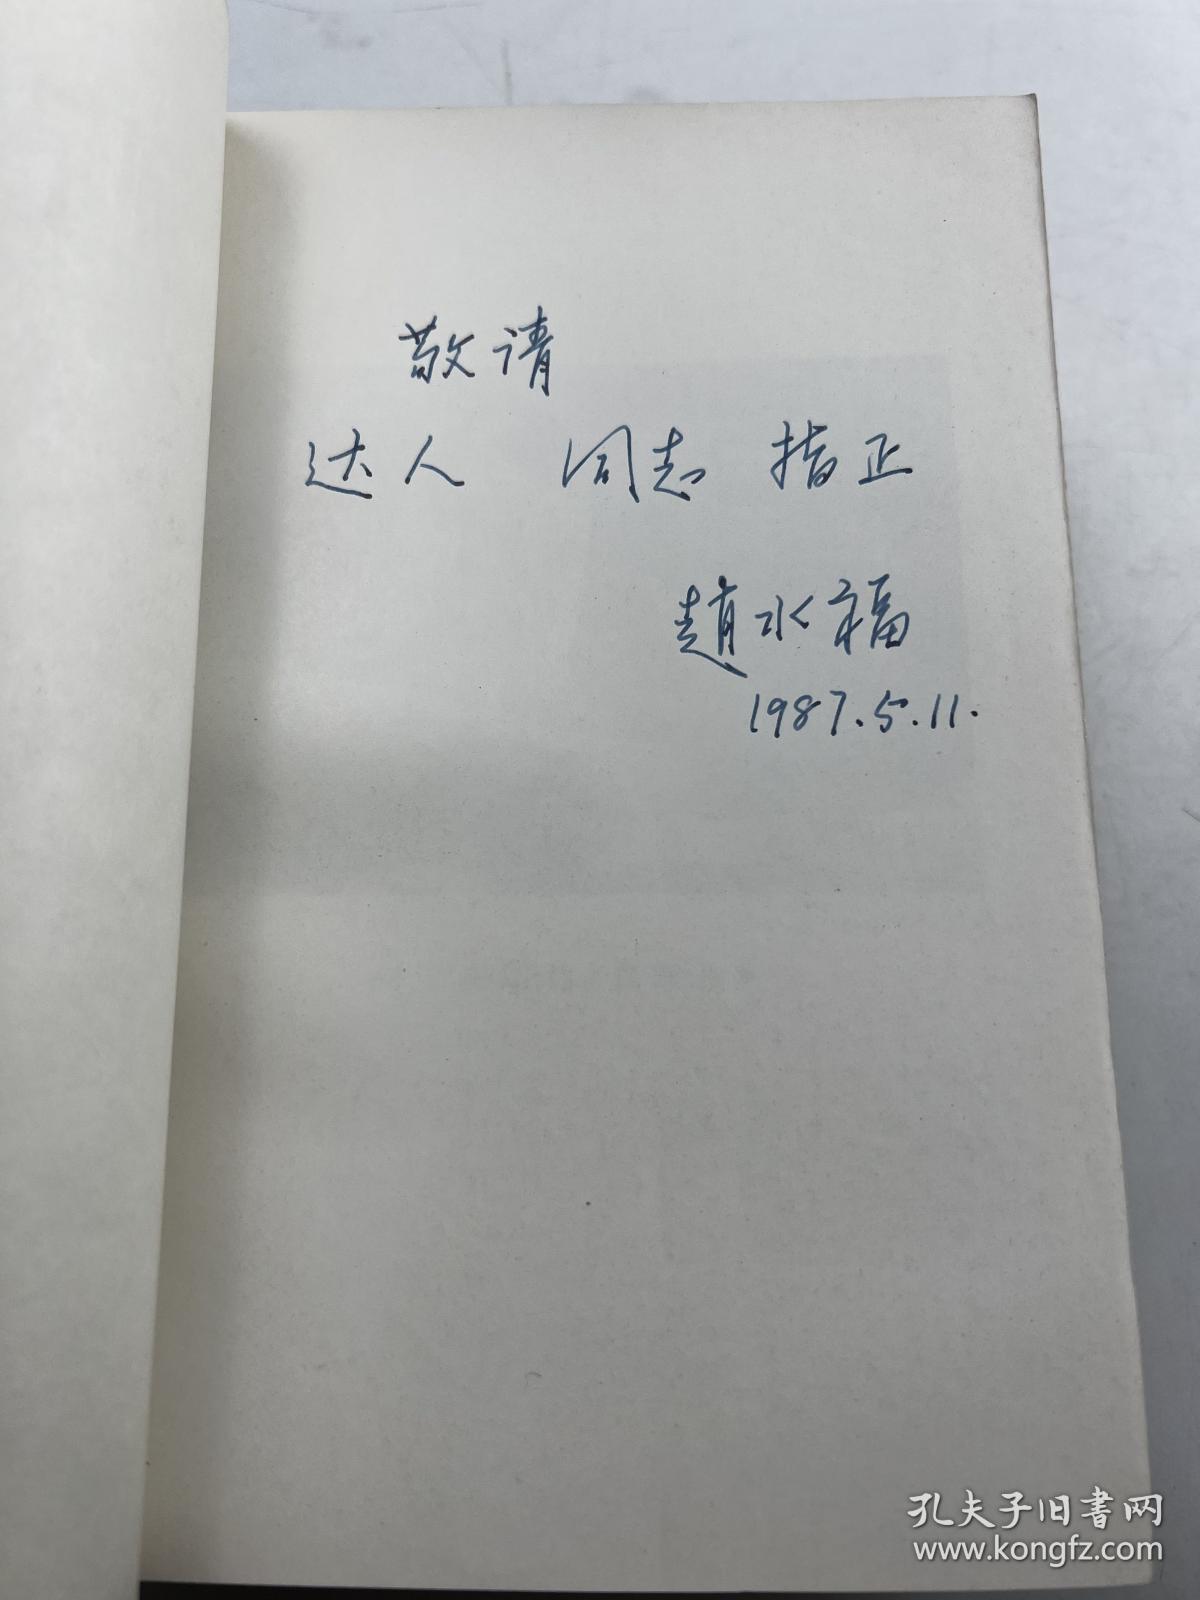 敬请
达人 同志 指正
趙水福
1987.5.11.
孔夫子旧书网
www.kongfz.com